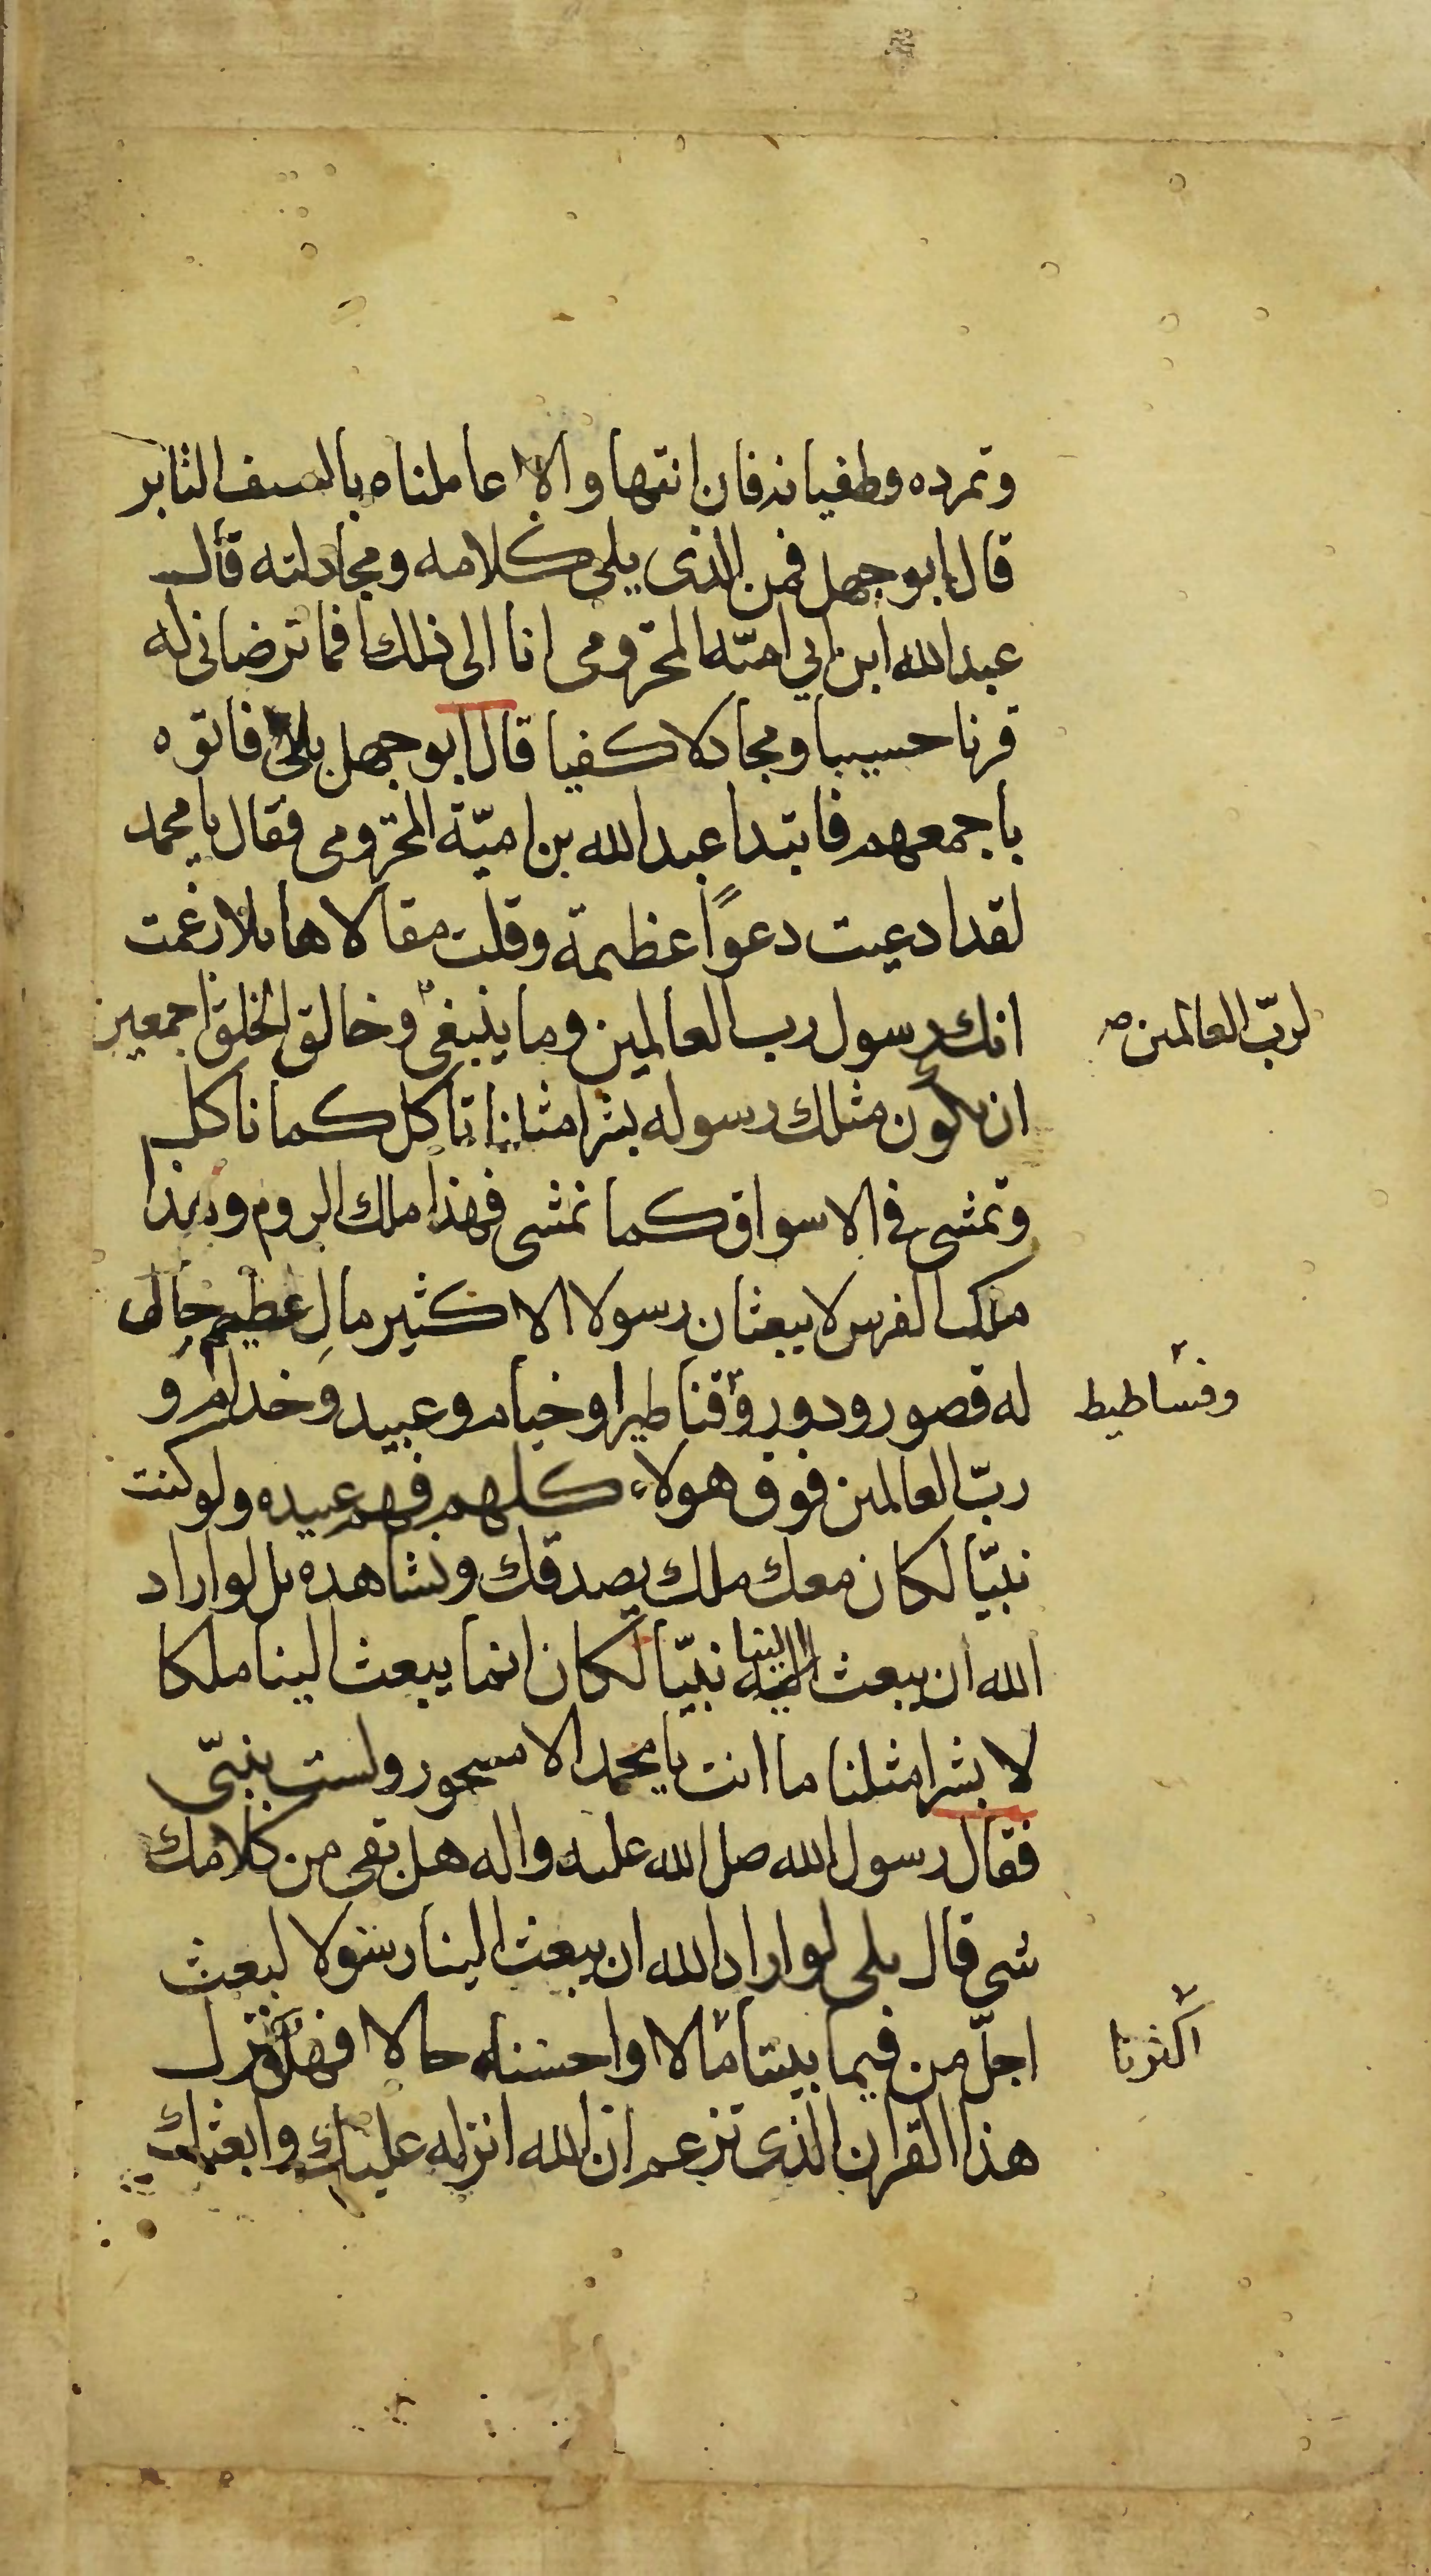 وتمرده وطغيانه فان انتها والا عاملناه بالسيف الباتر
قال ابو جهل فمن الذى يلى كلامه ومجادلته قال
عبد الله ابن ابي اميّه المخزومى انا الى ذلك افما ترضانى له
قرنا حسيبا ومجادلا كفيا قال ابو جهل بلى فاتوه
باجمعهم فابتدا عبد الله بن اميّة المخزومى فقال يا محمد
لقد ادعيت دعوًا عظيمة وقلت مقالا هائلا زعمت
انك رسول رب العالمين وما ينبغى وخالق الخلق اجمعين
لربّ العالمين صح
ان يكون مثلك رسوله بشرا مثلنا تاكل كما ناكل
وتمشى فى الاسواق كما نمشى فهذا ملك الروم وهذا
ملك الفرس لا يبعثان رسولا الا كثير مالٍ عظيم حال
له قصور ودور وقناطيرا وخيام وعبيد وخدام و
وفساطيط
ربّ العالمين فوق هولاء كلهم فهم عبيده ولو كنت
نبيّا لكان معك ملك يصدقك ونشاهده بل لو اراد
الله ان يبعث الينا نبيّا لكان انما يبعث الينا ملكا
لا بشرا مثلنا ما انت يا محمد الا مسحور ولست بنبيّ
فقال رسول الله صل الله عليه واله هل بقى من كلامك
شى قال بلى لو اراد الله ان يبعث الينا رسولا لبعث
اجلّ من فيما بيننا مالا واحسنه حالا فهلا نزل
اكثرنا
هذا القران الذى تزعم ان الله انزله عليك وابعثك